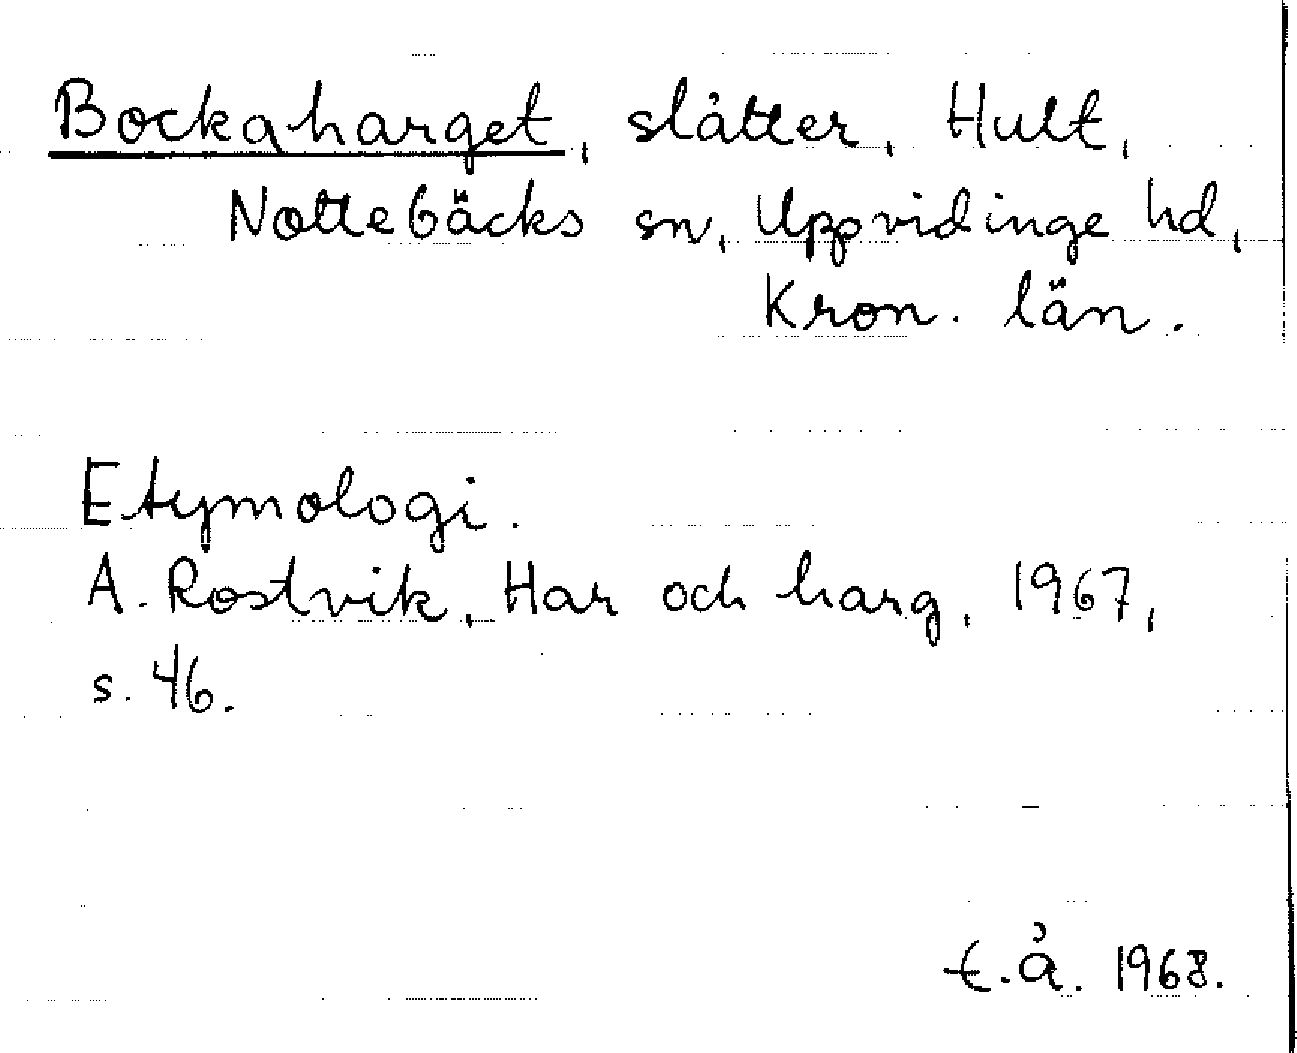 Bockaharget, slåtter, Hult,
Nottebäcks sn, Uppvidinge hd,
Kron. län.
Etymologi.
A. Rostvik, Har och harg, 1967,
s. 46.
t.å. 1968.